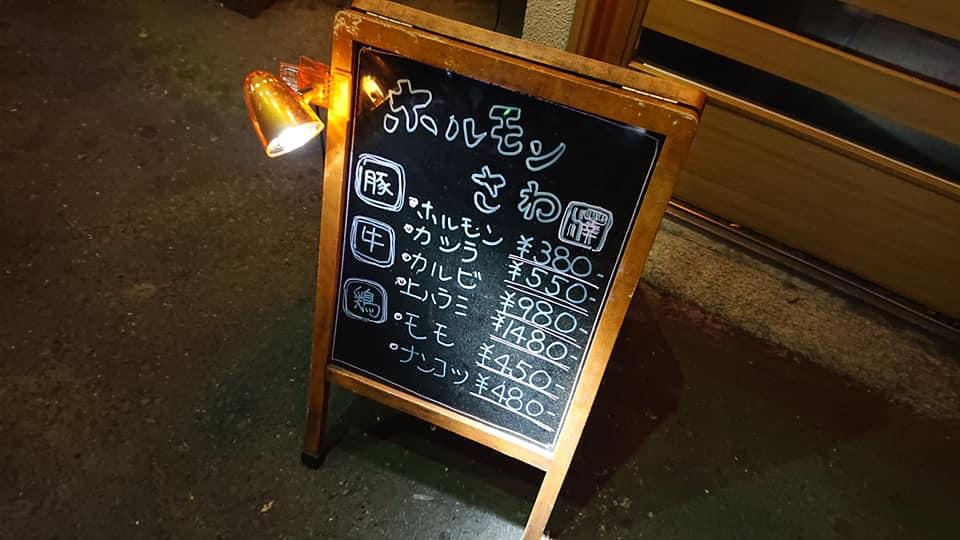 ホルモン
さわ 澤
豚 ・ホルモン ¥380-
・カシラ ¥550-
牛 ・カルビ ¥980-
・上ハラミ ¥1480-
鶏 ・モモ ¥450-
・ナンコツ ¥480-